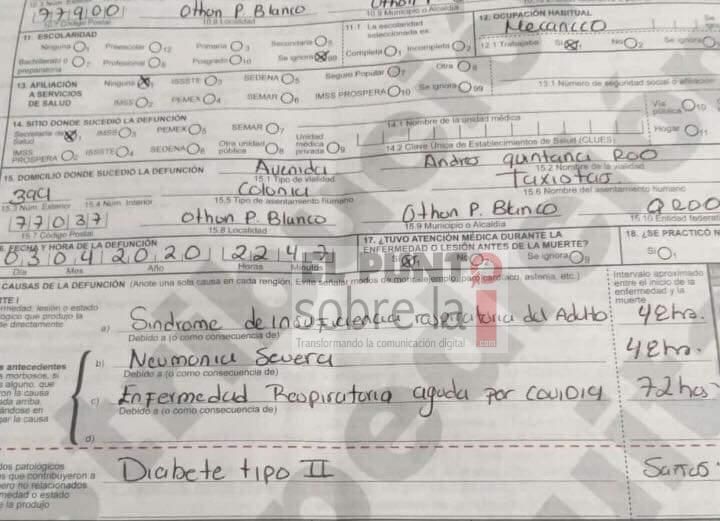 77900 Othon P. Blanco
10.7 Código Postal 10.8 Localidad 10.9 Municipio o Alcaldía
11. ESCOLARIDAD 11.1 La escolaridad seleccionada es: 12. OCUPACIÓN HABITUAL Mecanico
Ninguna 1 Preescolar 12 Primaria 3 Secundaria 5 Completa 1 Incompleta 2 12.1 Trabajaba Sí 1 No 2 Se ignora
Bachillerato o preparatoria 7 Profesional 8 Posgrado 10 Se ignora 99
13. AFILIACIÓN A SERVICIOS DE SALUD Ninguna 1 ISSSTE 3 SEDENA 5 Seguro Popular 7 Otra 8 13.1 Número de seguridad social o afiliación
IMSS 2 PEMEX 4 SEMAR 6 IMSS PROSPERA 10 Se ignora 99
14. SITIO DONDE SUCEDIÓ LA DEFUNCIÓN 14.1 Nombre de la unidad médica
Secretaría de Salud 1 IMSS 3 PEMEX 5 SEMAR 7 Vía pública 10
IMSS PROSPERA 2 ISSSTE 4 SEDENA 6 Otra unidad pública 8 Unidad médica privada 9 14.2 Clave Única de Establecimientos de Salud (CLUES) Hogar 11
15. DOMICILIO DONDE SUCEDIÓ LA DEFUNCIÓN Avenida Andres quintana Roo
15.1 Tipo de vialidad 15.2 Nombre de la vialidad
394 Colonia
15.3 Núm. Exterior 15.4 Núm. Interior 15.5 Tipo de asentamiento humano 15.6 Nombre del asentamiento humano
77037 Othon P. Blanco Othon P. Blanco QROO
15.7 Código Postal 15.8 Localidad 15.9 Municipio o Alcaldía 15.10 Entidad federat
6. FECHA Y HORA DE LA DEFUNCIÓN 17. ¿TUVO ATENCIÓN MÉDICA DURANTE LA ENFERMEDAD O LESIÓN ANTES DE LA MUERTE? 18. ¿SE PRACTICÓ N
03042020 2247 Sí 1 No 2 Se ignora 9 Sí 1
Día Mes Año Horas Minutos
EL PUNTO sobre la i
Transformando la comunicación digital .com
CAUSAS DE LA DEFUNCIÓN (Anote una sola causa en cada renglón. Evite señalar modos de morir, ejemplo: paro cardiaco, astenia, etc.) Intervalo aproximado entre el inicio de la enfermedad y la muerte
a) Sindrome de insuficiencia respiratoria del Adulto 48hrs.
Debido a (o como consecuencia de)
b) Neumonia Severa 48hrs.
Debido a (o como consecuencia de)
c) Enfermedad Respiratoria aguda por COVID19 72hrs
Debido a (o como consecuencia de)
d)
Diabete tipo II